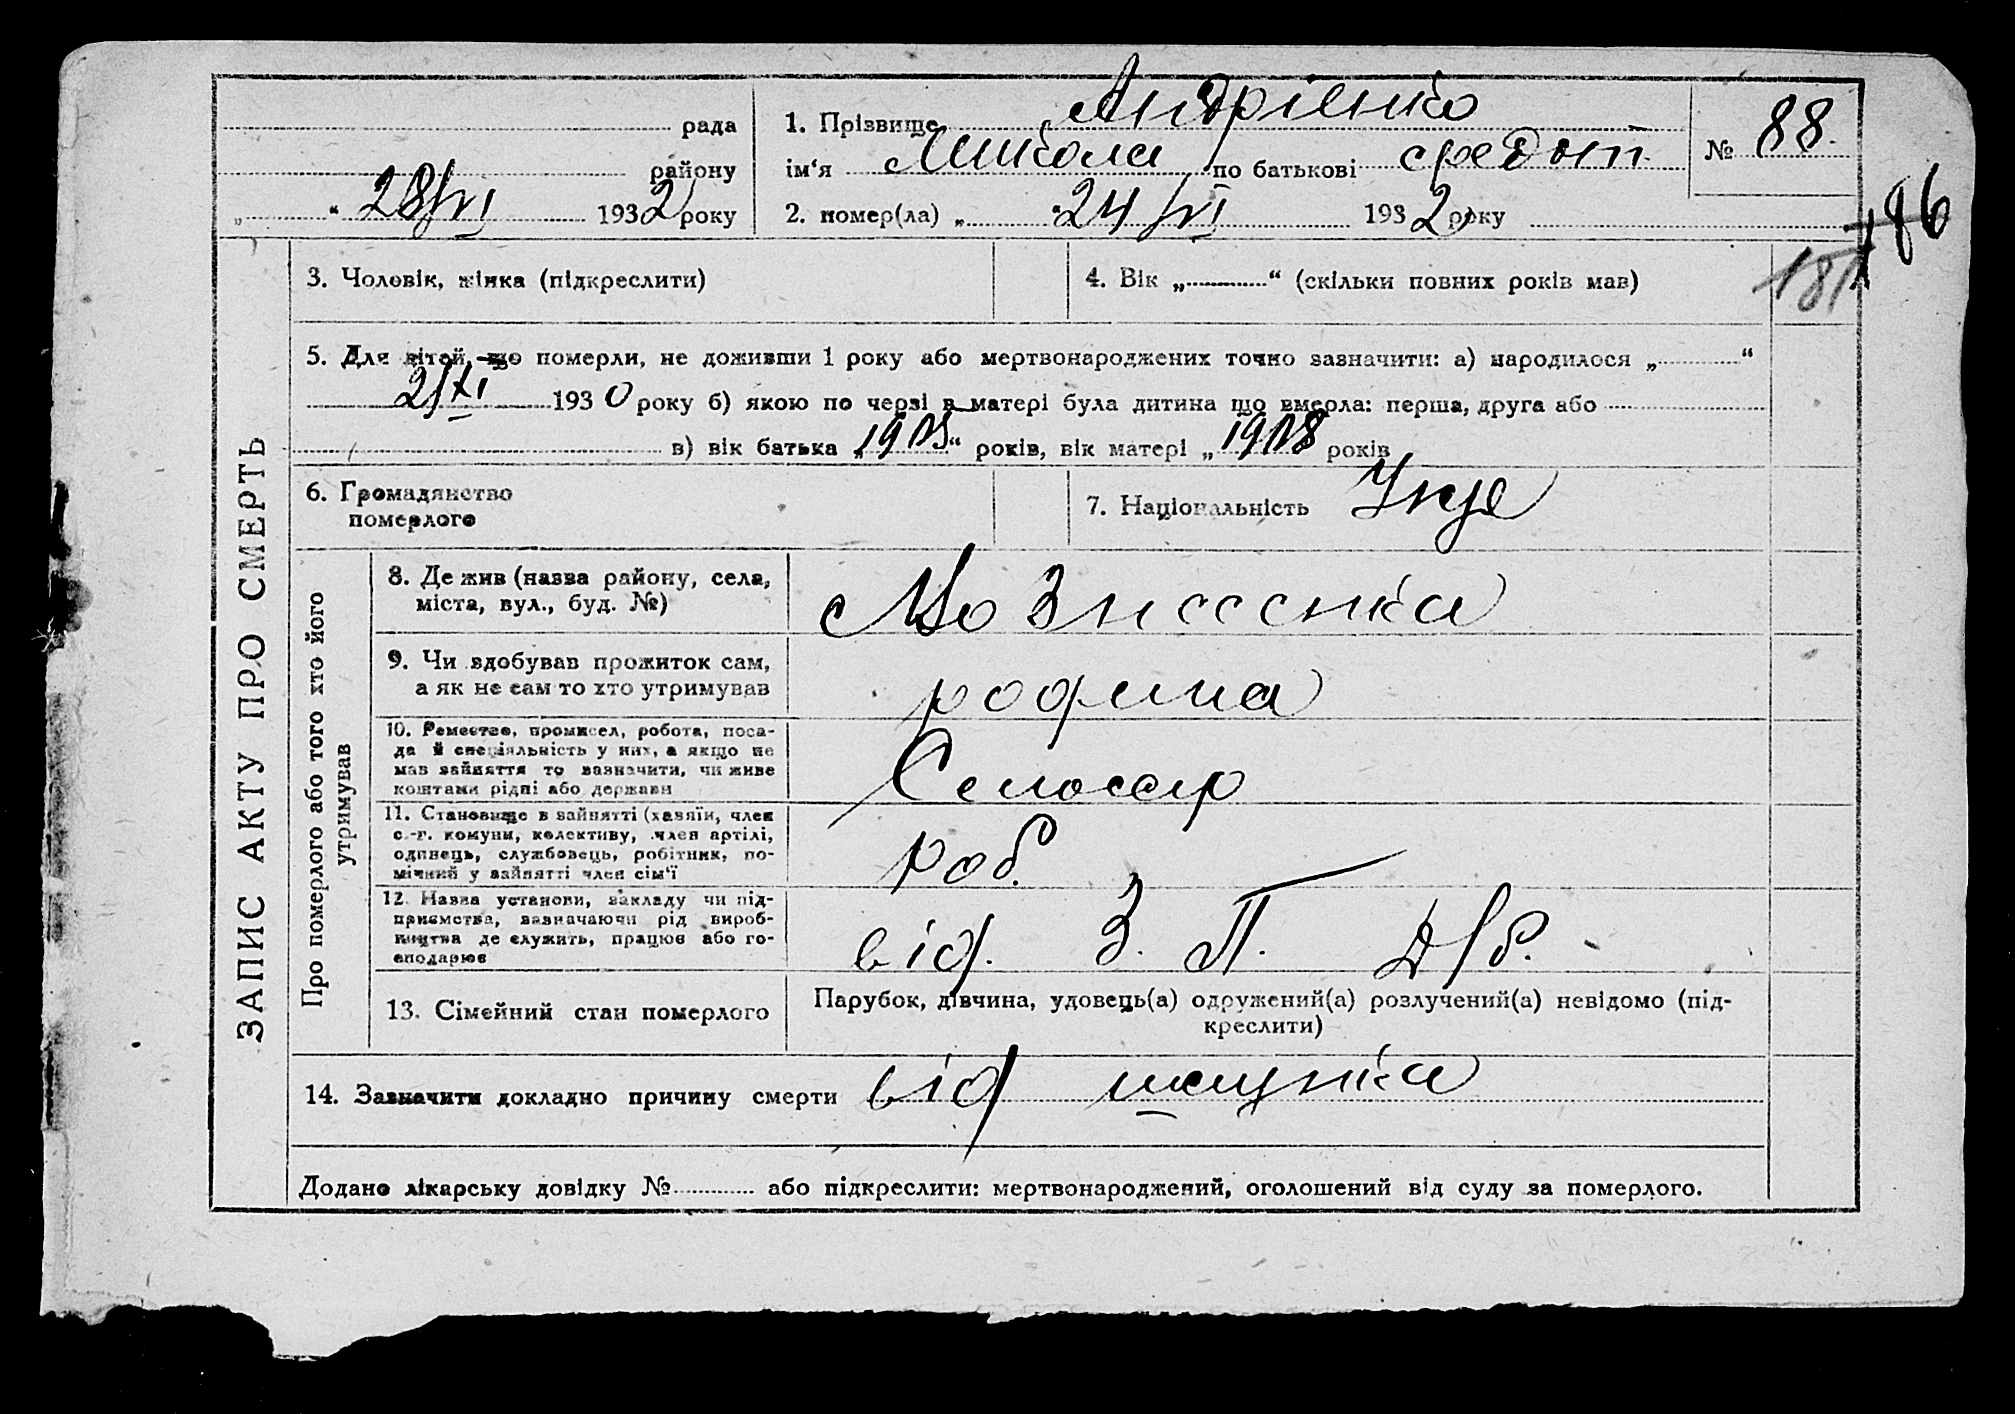 рада
району
„ “ 28/VI 1932 року
1. Прізвище Андрієнко
ім‘я Микола по батькові Федот.
2. помер(ла) „ “ 24/VI 1932 року
№ 88.
186
187
ЗАПИС АКТУ ПРО СМЕРТЬ
3. Чоловік, жінка (підкреслити)
4. Вік „ “ (скільки повних років мав)
5. Для дітей, що померли, не доживши 1 року або мертвонароджених точно зазначити: а) народилося „ “
2/XI 1930 року б) якою по черзі в матері була дитина що вмерла: перша, друга або
в) вік батька „ “ років, вік матері „ років
6. Громадянство
померлого
7. Національність Укр
Про померлого або того хто його
утримував
8. Де жив (назва району, села,
міста, вул., буд. №)
с Вознесенка
9. Чи здобував прожиток сам,
а як не сам то хто утримував
родина
10. Ремество, промисел, робота, поса-
да й спеціяльність у них, а якщо не
мав зайняття то зазначити, чи живе
коштами рідні або держави
11. Становище в зайнятті (хазяїн, член
с.-г. комуни, колективу, член артілі,
одинець, службовець, робітник, по-
мічний у зайнятті член сім‘ї
роб.
12. Назва установи, закладу чи під-
приємства, зазначаючи рід вироб-
ництва де служить, працює або го-
сподарює
від. З. П. Д/б.
13. Сімейний стан померлого
Парубок, дівчина, удовець(а) одружений(а) розлучений(а) невідомо (під-
креслити)
14. Зазначити докладно причину смерти від шлунка
Додано лікарську довідку № або підкреслити: мертвонароджений, оголошений від суду за померлого.